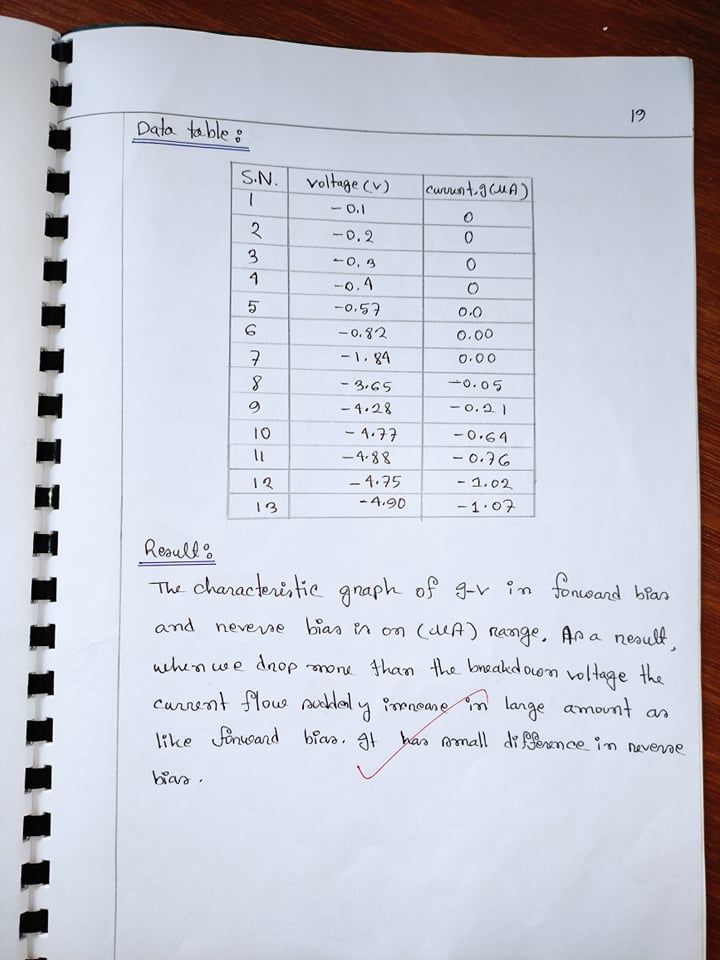 19
Data table:
S.N. voltage (V) current, I (μA)
1 -0.1 0
2 -0.2 0
3 -0.3 0
4 -0.4 0
5 -0.57 0.0
6 -0.82 0.00
7 -1.84 0.00
8 -3.65 -0.05
9 -4.28 -0.21
10 -4.77 -0.64
11 -4.88 -0.76
12 -4.75 -1.02
13 -4.90 -1.07
Result:
The characteristic graph of I-V in forward bias
and reverse bias is on (μA) range. As a result,
when we drop more than the breakdown voltage the
current flow suddenly increase in large amount as
like forward bias. It has small difference in reverse
bias.